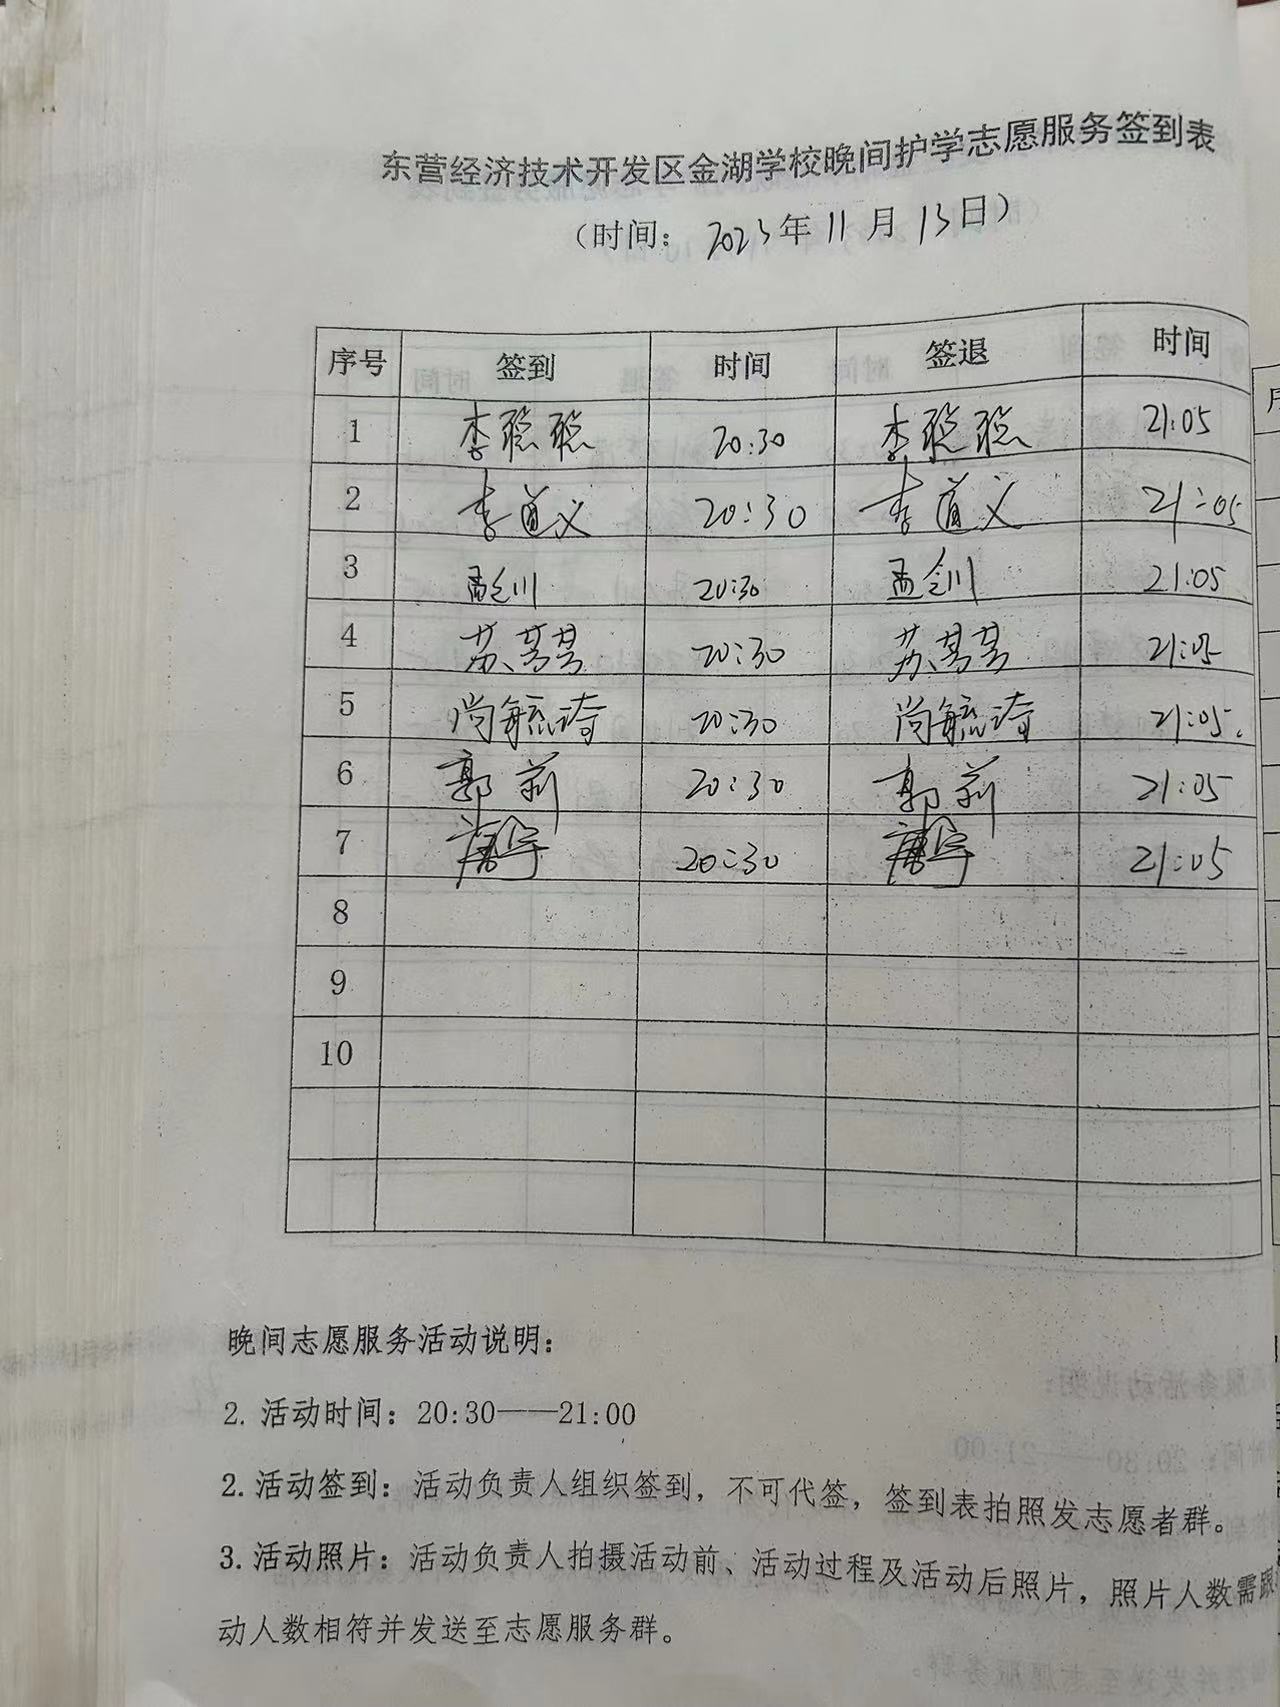 东营经济技术开发区金湖学校晚间护学志愿服务签到表
（时间：2023年11月13日）
序号 签到 时间 签退 时间
1 李聪聪 20:30 李聪聪 21:05
2 李道义 20:30 李道义 21:05
3 孟令川 20:30 孟令川 21:05
4 苏 20:30 苏 21:05
5 尚毓琦 20:30 尚毓琦 21:05.
6 郭莉 20:30 郭莉 21:05
7 20:30 21:05
8
9
10
晚间志愿服务活动说明：
2. 活动时间：20:30——21:00
2. 活动签到：活动负责人组织签到，不可代签，签到表拍照发志愿者群。
3. 活动照片：活动负责人拍摄活动前、活动过程及活动后照片，照片人数需跟
动人数相符并发送至志愿服务群。